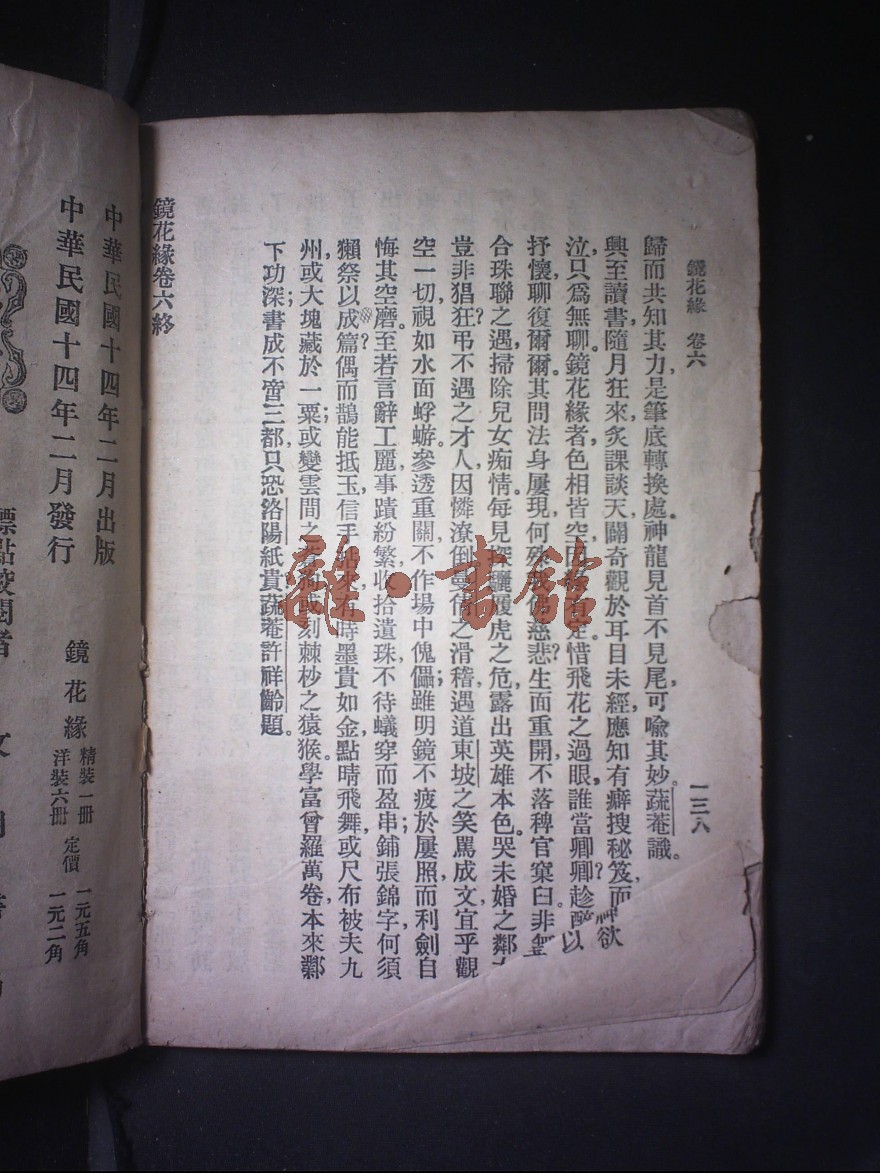 鏡花緣　卷六
一三八
歸而共知其力，是筆底轉換處。神龍見首不見尾，可喩其妙。蔬菴識。
興至讀書，隨月狂來炙課談天，闢奇觀於耳目未經，應知有癖，搜秘笈而神欲
泣，只爲無聊。鏡花緣者，色相皆空，因緣有定。惜飛花之過眼，誰當卿卿？趁以
抒懷，聊復爾爾。其問法身屢現，何殊我佛慈悲？生面重開，不落稗官窠臼。非
合珠聯之遇，掃除兒女痴情。每見探驪履虎之危，露出英雄本色。哭未婚之鄰
豈非猖狂？弔不遇之才人，因憐潦倒。曼倩之滑稽遇道，東坡之笑罵成文，宜乎觀
空一切，視如水面蜉蝣。參透重關，不作場中傀儡；雖明鏡不疲於屢照，而利劍自
悔其空磨。至若言辭工麗，事蹟紛繁，收拾遺珠，不待蟻穿而盈串；鋪張錦字，何須
獺祭以成篇？偶而鵲能抵玉，信手拈來，有時墨貴如金，點睛飛舞，或尺布被夫九
州，或大塊藏於一粟；或變雲間之蒼狗，或刻棘杪之猿猴。學富曾羅萬卷，本來鄴
下功深；書成不啻三都，只恐洛陽紙貴。蔬菴許祥齡題。
鏡花緣卷六終
中華民國十四年二月出版
中華民國十四年二月發行
鏡花緣
精裝一册
洋裝六册
定價
一元五角
一元二角
標點校閱者